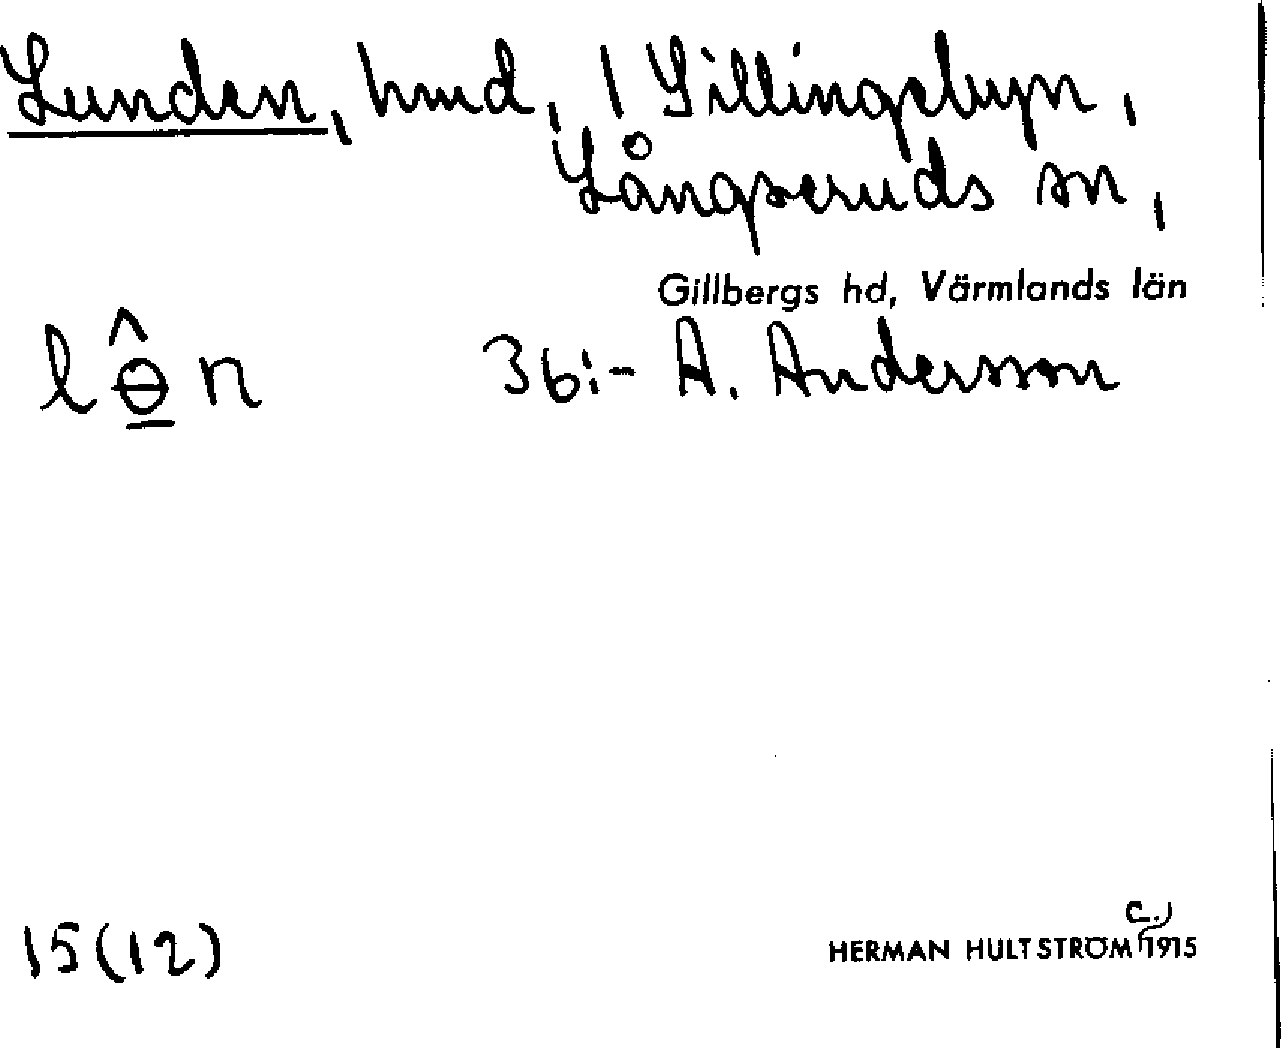 Lunden, hmd, 1 Lillingebyn,
Långseruds sn,
Gillbergs hd, Värmlands län
lɵ̠̂n 36:- A. Andersson
15(12)
c.)
HERMAN HULTSTRÖM 1915